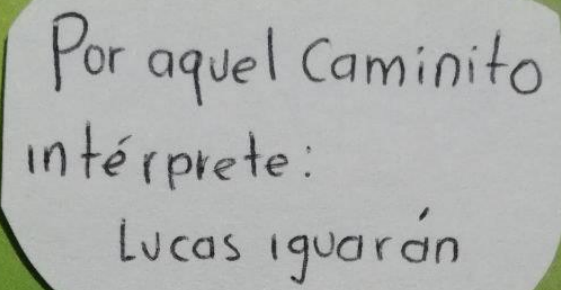 Por aquel Caminito
intérprete:
Lucas iguarán